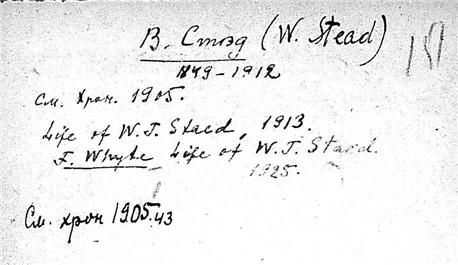 В. Стэд (W. Stead)
1849-1912
См. Хрон. 1905.
Life of W. T. Staed, 1913.
F. Whyte Life of W. T. Staed.
1925.
См. хрон 1905.43